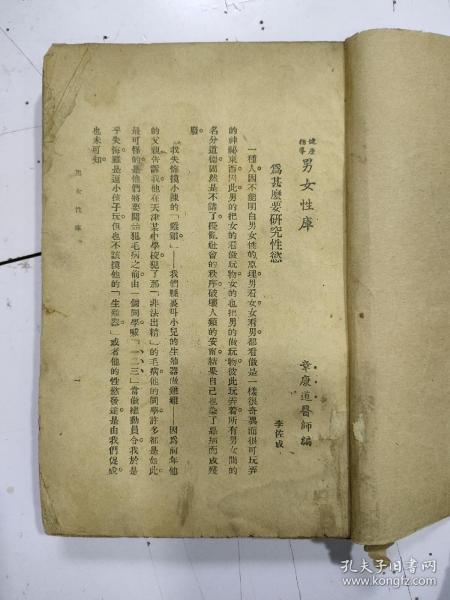 健康指導 男女性庫
章康道醫師編
為甚麼要研究性慾
李佐成
一種人因不能明白男女性的原理男看女女看男都看做是一樣很奇異而很可玩弄
的神祕東西因此男的把女的看做玩物女的也把男的做玩物彼此玩弄着所有男女間的
名分道德固然是不講了擾亂社會的秩序破壞人類的安甯結果自己也染了惡病而成殘
廢。
我失悔摸小陳的「雞雞」——我們縣裏叫小兒的生殖器做雞雞——因為前年他
的父親告訴我他在天津某中學校犯了那「非法出精」的毛病他的同學許多都是如此
最可怪的是他們將要開始犯毛病之前由一個同學喊「一、二、三」當做總動員令我於是
乎失悔雖是逗小孩子玩但也不該摸他的「生殖器」或者他的性慾發達是由我們促成
也未可知。
男女性庫
一
孔夫子旧书网
www.kongfz.com